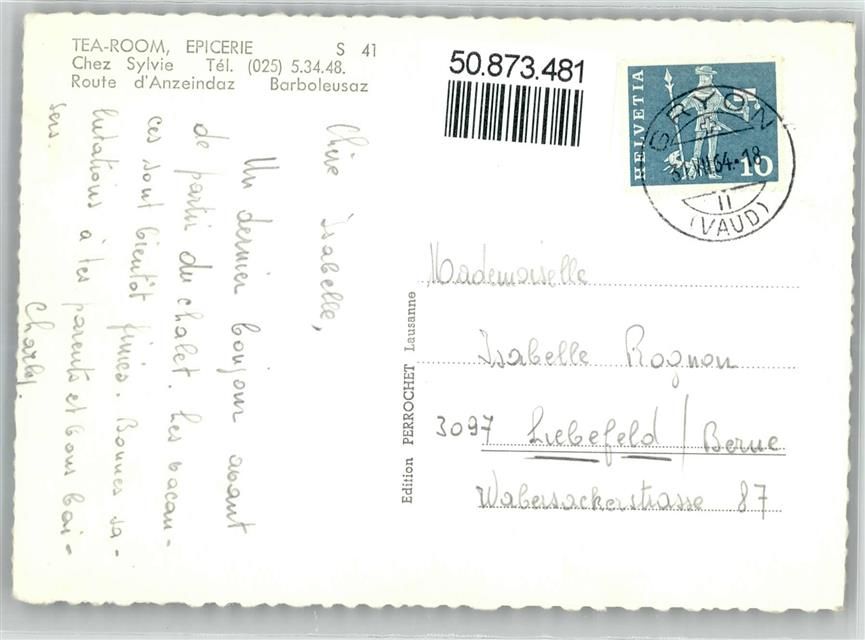 TEA-ROOM, EPICERIE S 41
Chez Sylvie Tél. (025) 5.34.48.
Route d'Anzeindaz Barboleusaz
Chère Isabelle,
Un dernier bonjour avant
de partir du chalet. Les vacan-
ces sont bientôt finies. Bonnes sa-
lutations à tes parents et bons bai-
sers.
Charly.
Edition PERROCHET Lausanne
50.873.481
HELVETIA
10
GRYON
64-18
11
(VAUD)
Mademoiselle
Isabelle Rognon
3097 Liebefeld / Berne
Wabersackerstrasse 87